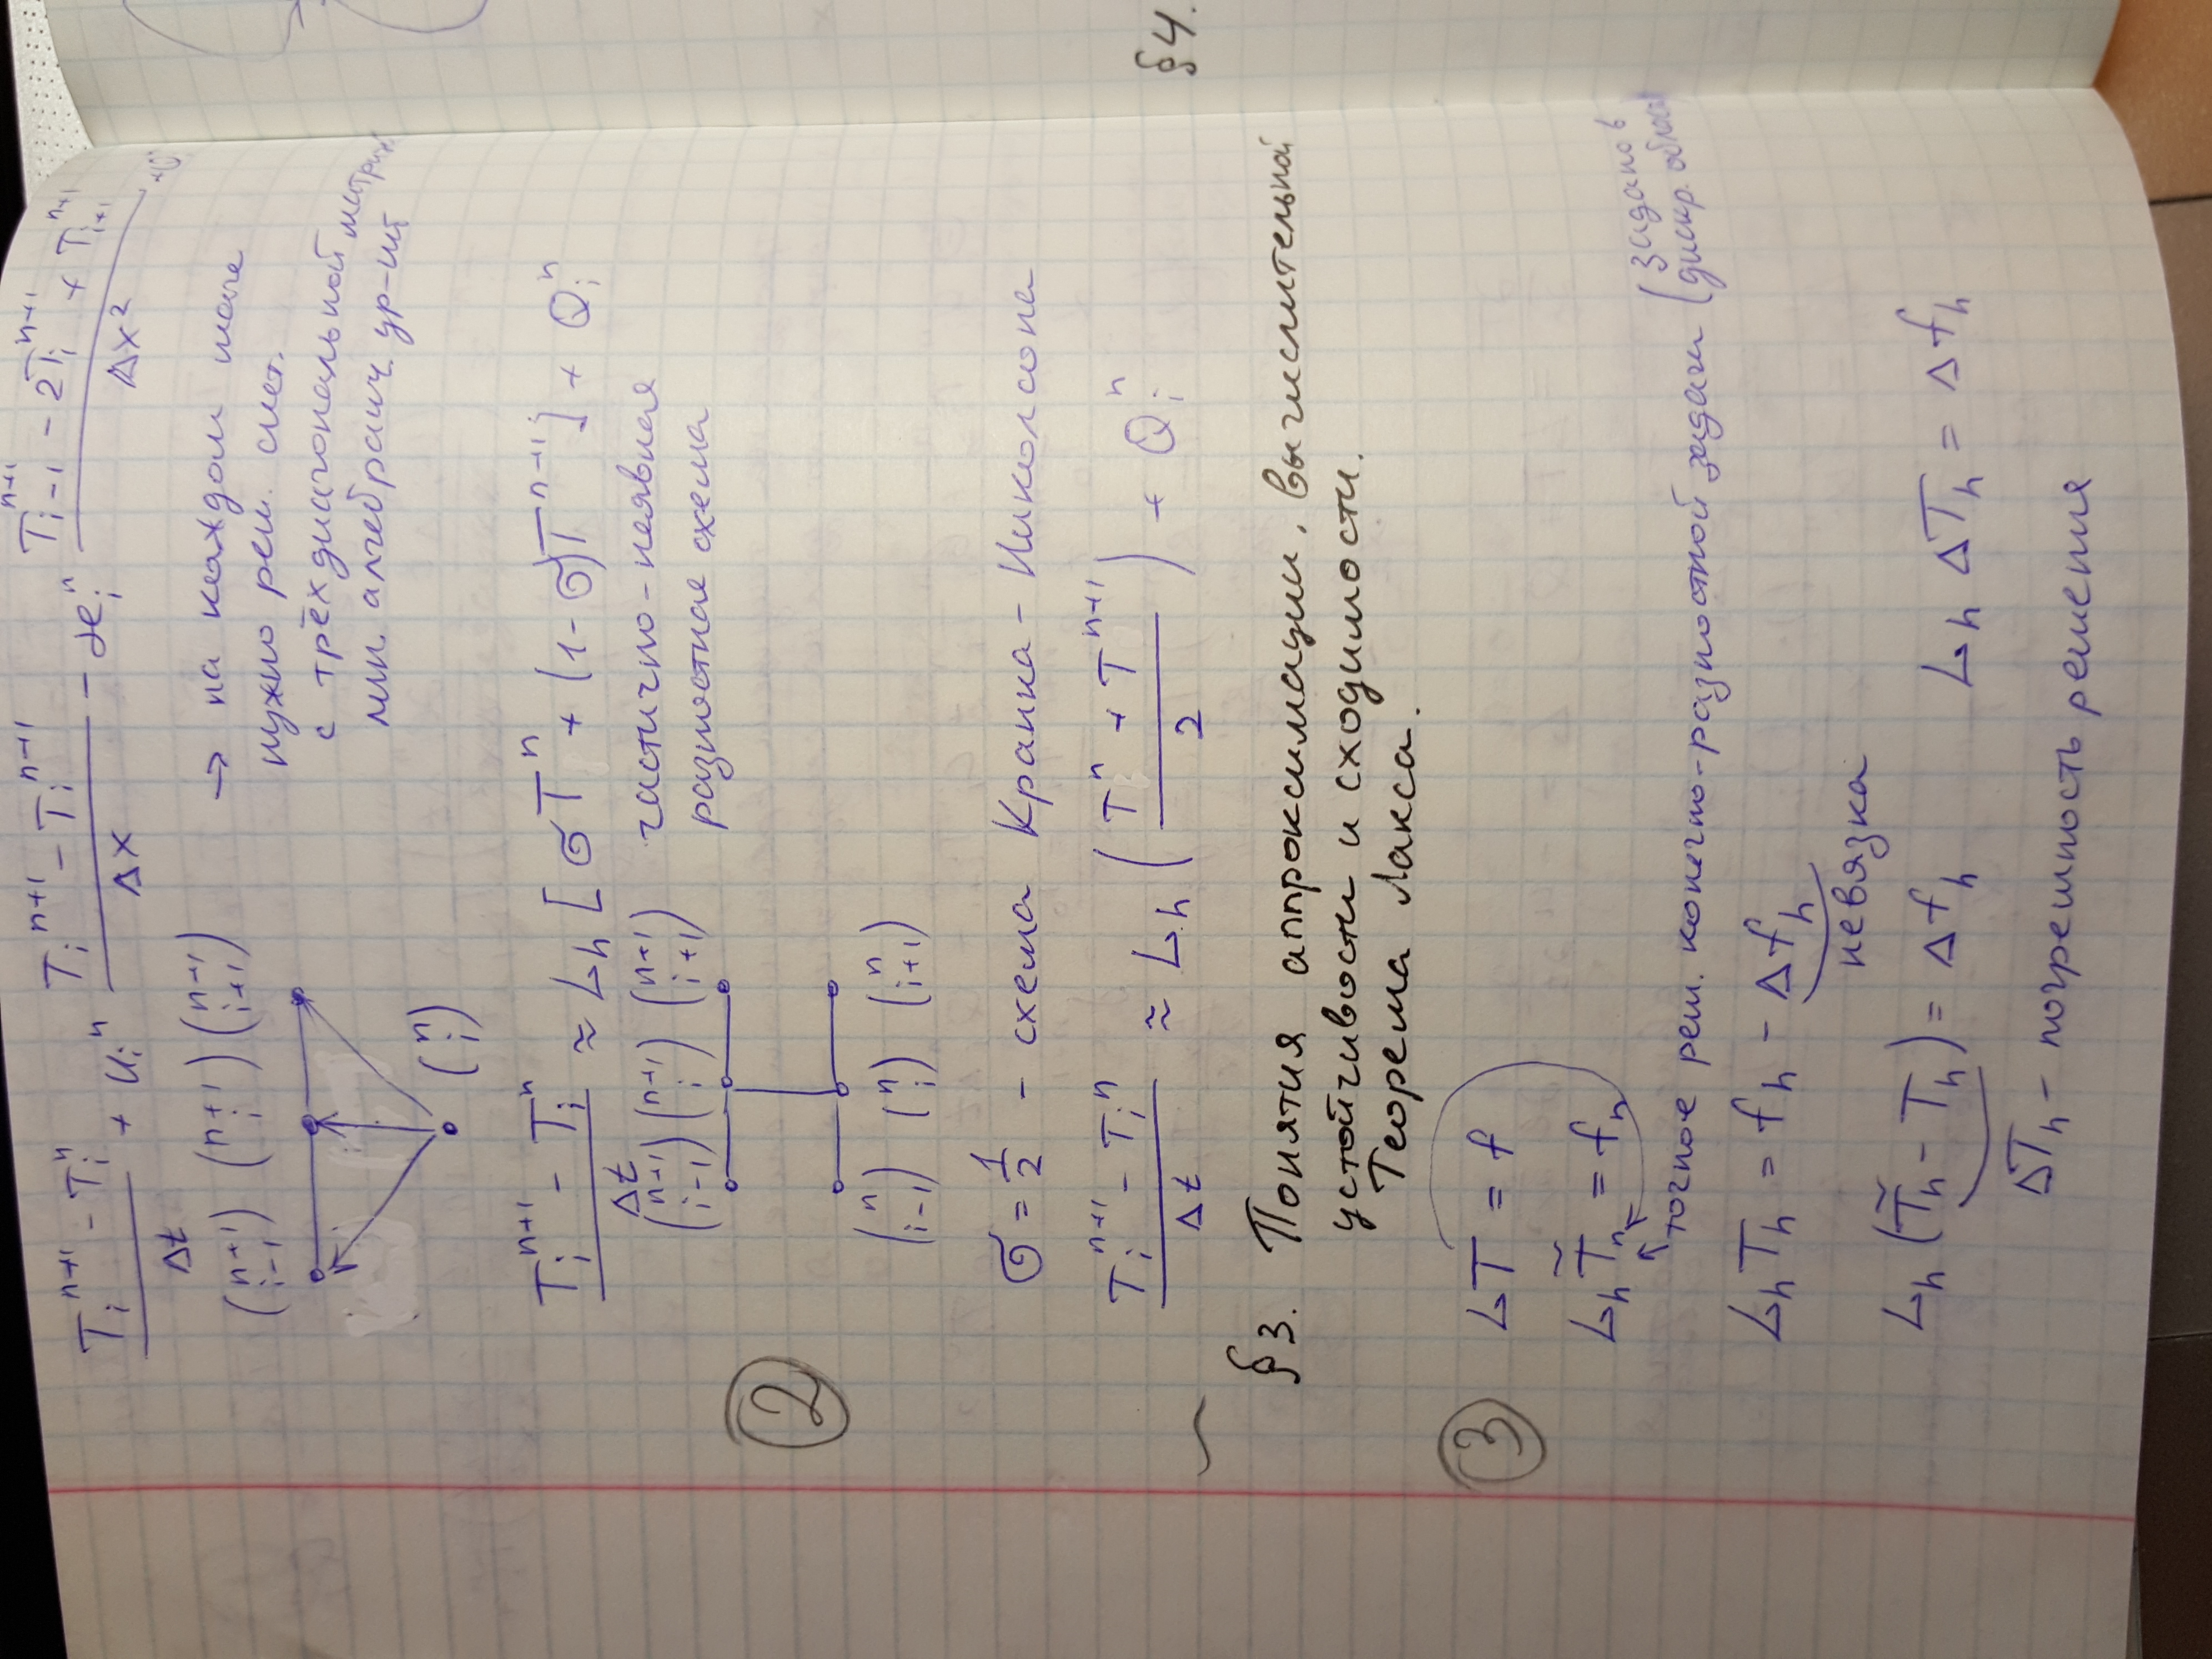 T_i^{n+1} - T_i^n / Δt + u_i^n T_i^{n+1} - T_i^{n+1} / Δx - æ_i^n T_{i-1}^{n+1} - 2T_i^{n+1} + T_{i+1}^{n+1} / Δx²
(n+1 i-1) (n+1 i) (n+1 i+1)
→ на каждом шаге
нужно реш. сист.
с трёхдиагональной
лин. алгебраич. ур-ий
(n i)
T_i^{n+1} - T_i^n / Δt ≈ L_h [σT^n + (1-σ)T^{n+1}] + Q_i^n
(n+1 i-1) (n+1 i) (n+1 i+1)
частично-неявная
разностная схема
2
(n i-1) (n i) (n i+1)
σ = 1/2 - схема Кранка-Николсона
T_i^{n+1} - T_i^n / Δt ≈ L_h (T^n + T^{n+1} / 2) + Q_i^n
§4.
§3. Понятия аппроксимации, вычислительной
устойчивости и сходимости.
Теорема Лакса.
3
LT = f
L_h T̃_h = f_h
точное реш. конечно-разностной задачи (задано в
дискр.
L_h T_h = f_h - Δf_h
невязка
L_h (T̃_h - T_h) = Δf_h L_h ΔT_h = Δf_h
ΔT_h - погрешность решения